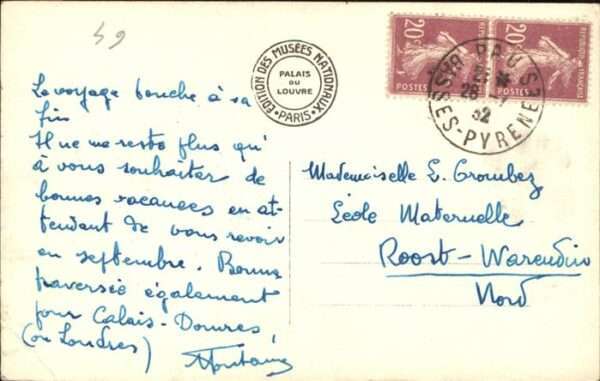 49
Le voyage touche à sa
fin
Il ne me reste plus qu'
à vous souhaiter de
bonnes vacances en at-
tendant de vous revoir
en septembre. Bonne
traversée également
pour Calais-Douvres
(ou Londres)
EDITION DES MUSÉES NATIONAUX
PALAIS
DU
LOUVRE
PARIS
20c REPUBLIQUE FRANÇAISE POSTES
20c REPUBLIQUE FRANÇAISE POSTES
PAU
BSES-PYRENEES
32
Mademoiselle L. Crombez
École Maternelle
Roost-Warendin
Nord